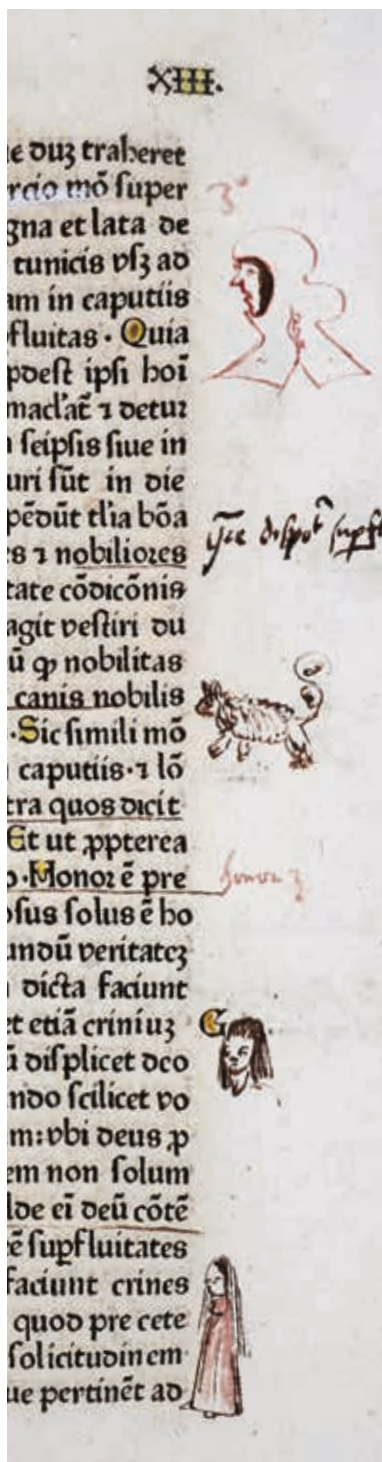 XIII.
e duȝ traheret
rcio mō super
3º
gna et lata de
tunicis vsȝ ad
am in caputiis
fluitas · Quia
podest ipsi hoī
maclat̄ ⁊ detur
seipsis siue in
uri sūt in die
pēdūt tl'ia bōa
s ⁊ nobiliores
tate cōdicōnis
agit vestiri du
ū ꝙ nobilitas
canis nobilis
·Sic simili mō
caputiis·⁊ lō
tra quos dicit
Et ut ꝓpterea
o·Honor ē pre
honor
osus solus ē ho
undū veritateȝ
dicta faciunt
et etiā criniuȝ · G
ū displicet deo
ndo scilicet vo
m:vbi deus ꝓ
em non solum
lde ei deū cōtē
ē suꝑfluitates
faciunt crines
quod pre cete
solicitudinem
ue pertinēt ad